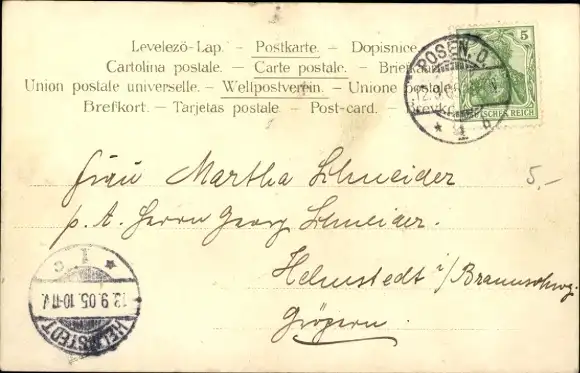 Levelezö-Lap. – Postkarte. – Dopisnice.
Cartolina postale. – Carte postale. – Briefkaart
Union postale universelle. – Weltpostverein. – Unione postale
Brefkort. – Tarjetas postale – Post-card. – Brevkort
5
DEUTSCHES REICH
POSEN. O.
12.9.05
* 1 b
Frau Martha Schneider
5,–
p. A. Herrn Georg Schneider.
Helmstedt i/Braunschwg.
HELMSTEDT
13.9.05.10-11V.
* 1 c